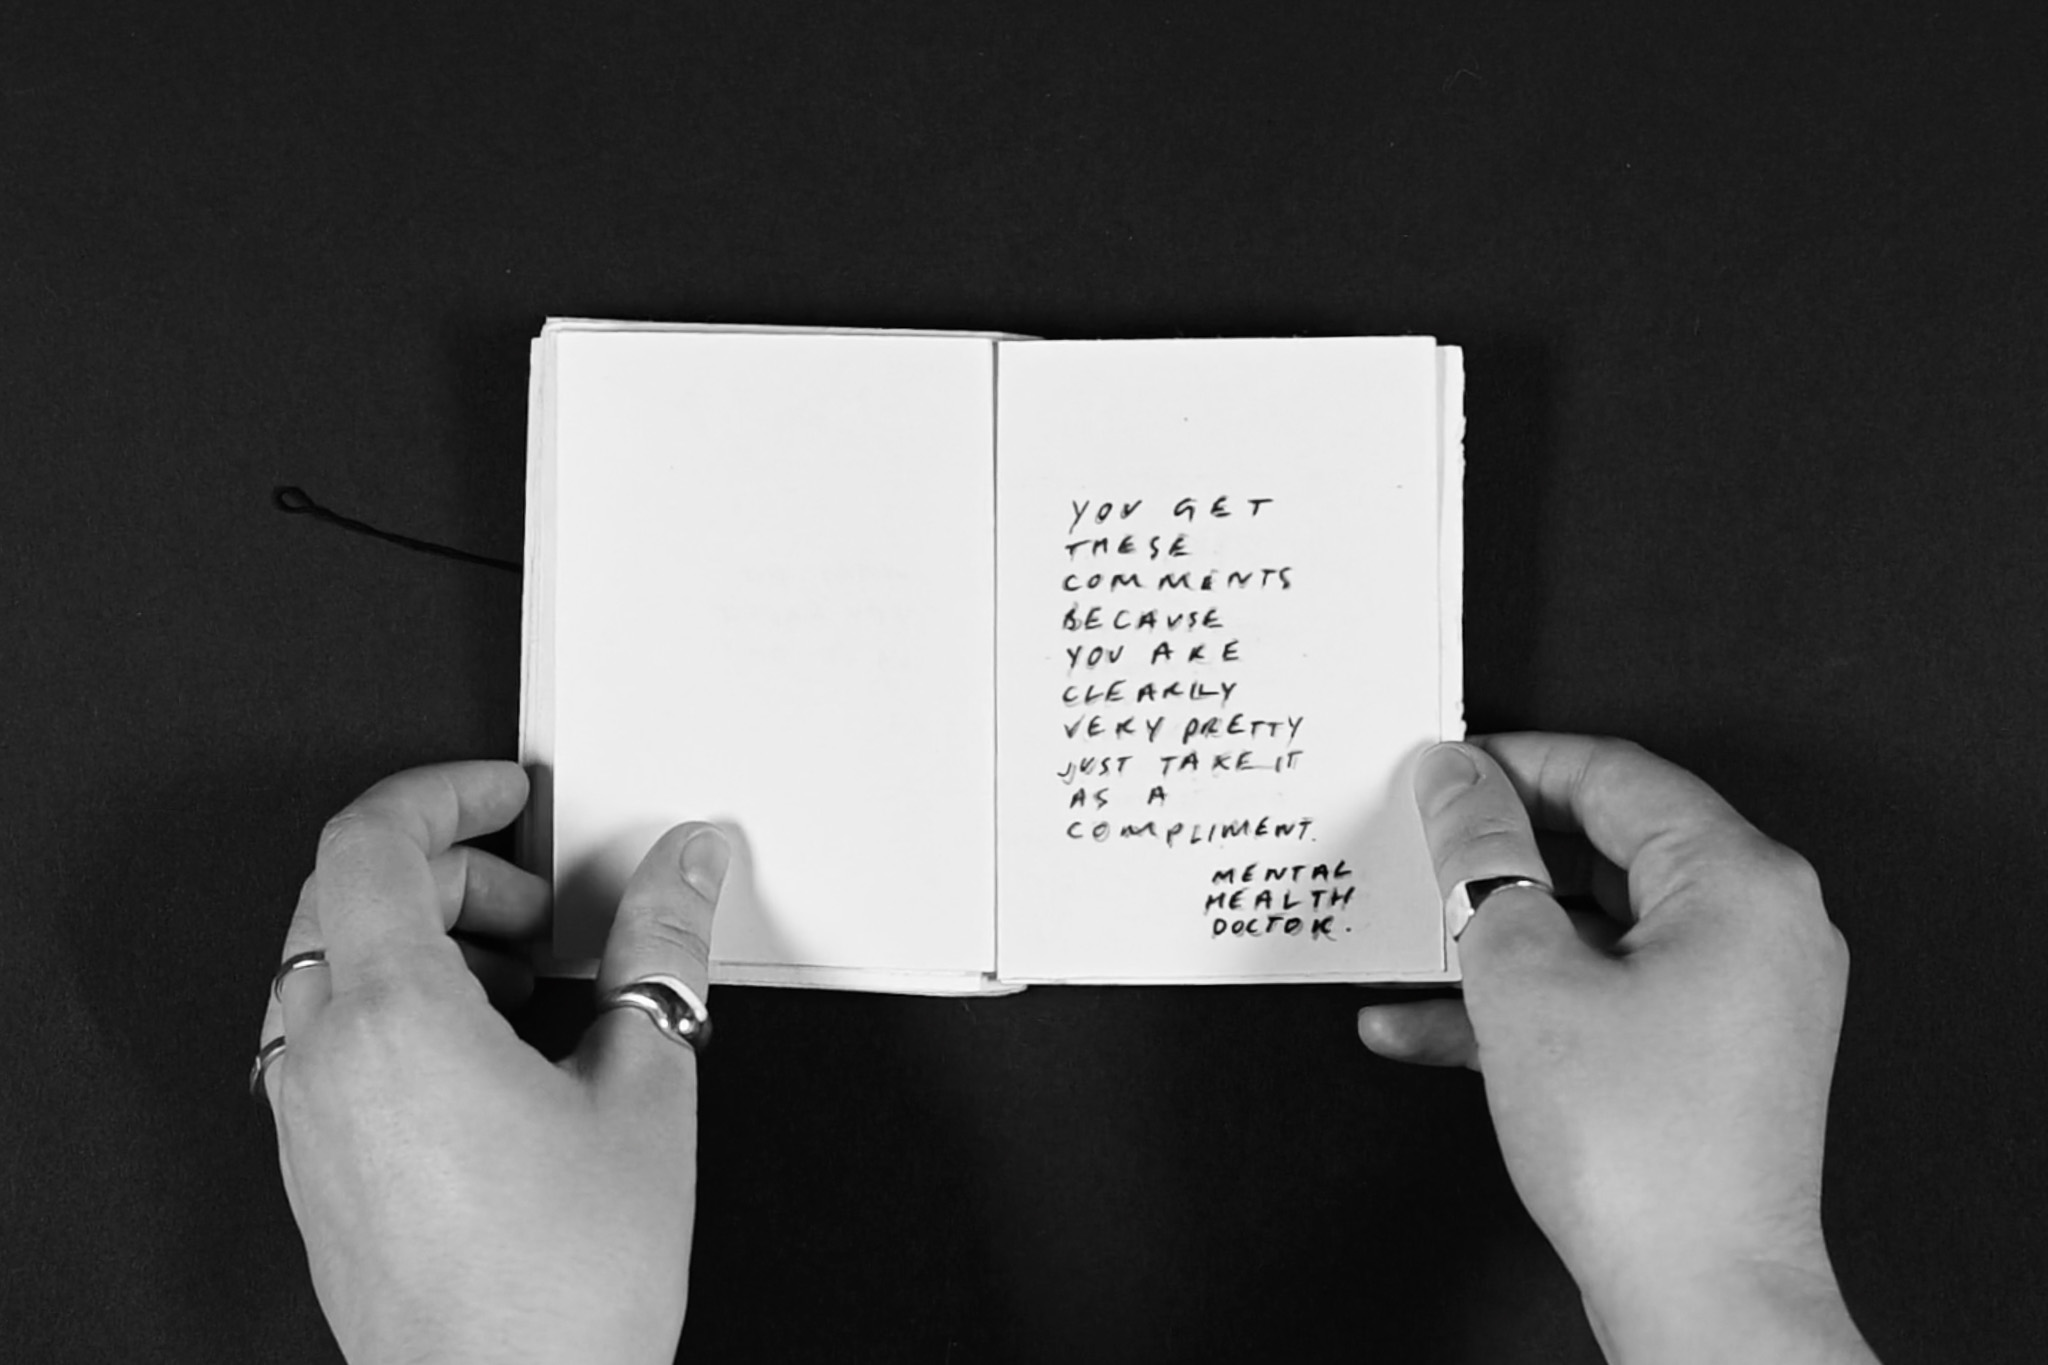 YOU GET
THESE
COMMENTS
BECAUSE
YOU ARE
CLEARLY
VERY PRETTY
JUST TAKE IT
AS A
COMPLIMENT.
MENTAL
HEALTH
DOCTOR.